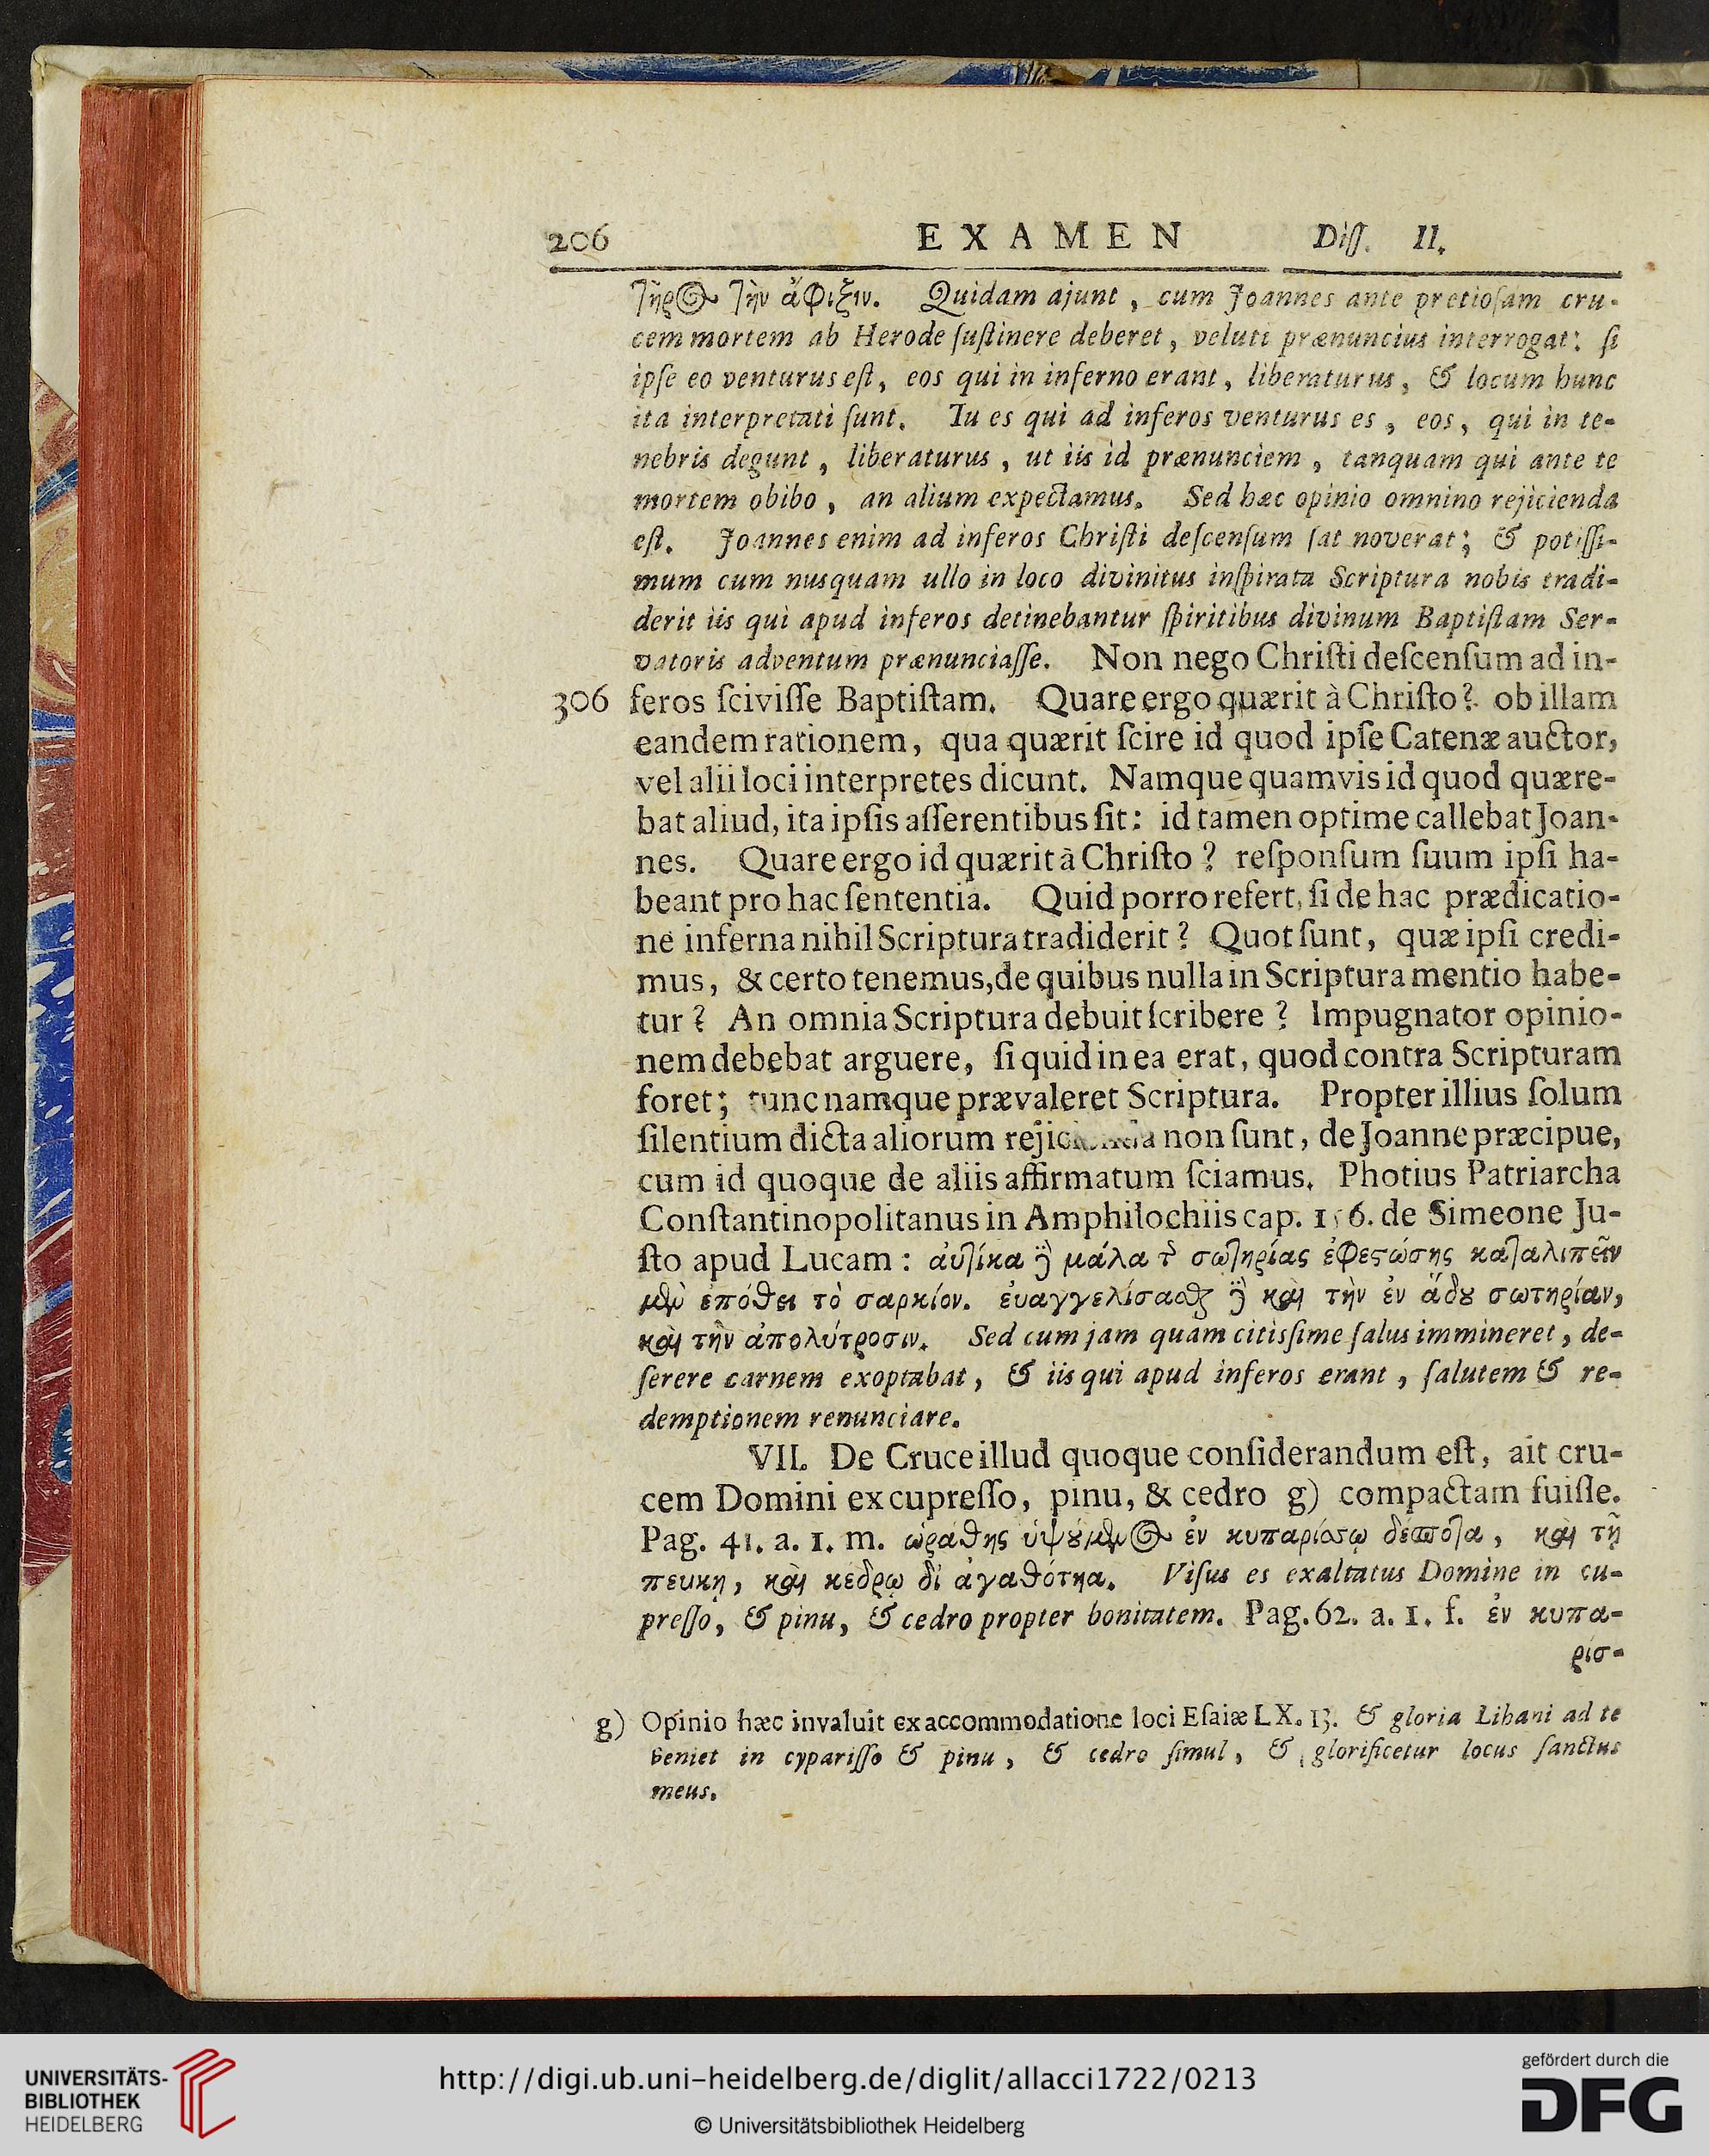 206 EXAMEN Diſſ. II.
τῆρ۞ τὴν ἄφιξιν. Quidam ajunt, cum Joannes ante pretioſam cru-
cem mortem ab Herode ſuſtinere deberet, veluti prænuncius interrogat: ſi
ipſe eo venturus eſt, eos qui in inferno erant, liberaturus, & locum hunc
ita interpretati ſunt. Tu es qui ad inferos venturus es, eos, qui in te-
nebris degunt, liberaturus, ut iis id prænunciem, tanquam qui ante te
mortem obibo, an alium expectamus. Sed hæc opinio omnino rejicienda
eſt. Joannes enim ad inferos Chriſti deſcenſum ſat noverat; & potiſſi-
mum cum nusquam ullo in loco divinitus inſpirata Scriptura nobis tradi-
derit iis qui apud inferos detinebantur ſpiritibus divinum Baptiſtam Ser-
vatoris adventum prænunciaſſe. Non nego Chriſti deſcenſum ad in-
306 feros ſciviſſe Baptiſtam. Quare ergo quærit à Chriſto? ob illam
eandem rationem, qua quærit ſcire id quod ipſe Catenæ auctor,
vel alii loci interpretes dicunt. Namque quamvis id quod quære-
bat aliud, ita ipſis aſſerentibus ſit: id tamen optime callebat Joan-
nes. Quare ergo id quærit à Chriſto? reſponſum ſuum ipſi ha-
beant pro hac ſententia. Quid porro refert, ſi de hac prædicatio-
ne inferna nihil Scriptura tradiderit? Quot ſunt, quæ ipſi credi-
mus, & certo tenemus, de quibus nulla in Scriptura mentio habe-
tur? An omnia Scriptura debuit ſcribere? Impugnator opinio-
nem debebat arguere, ſi quid in ea erat, quod contra Scripturam
foret; tunc namque prævaleret Scriptura. Propter illius ſolum
ſilentium dicta aliorum rejicienda non ſunt, de Joanne præcipue,
cum id quoque de aliis affirmatum ſciamus. Photius Patriarcha
Conſtantinopolitanus in Amphilochiis cap. 156. de Simeone Ju-
ſto apud Lucam: αὐτίκα ϳ̈ μάλα τ̃ σωτηρίας ἐφεςώσης καταλιπεῖν
μὲν ἐπόθει τὸ σαρκίον. ευαγγελίσασθαι ϳ̈ καὶ τὴν ἐν ἅδȣ σωτηρίαν,
καὶ τὴν ἀπολύτροσιν. Sed cum jam quam citisſime ſalus immineret, de-
ſerere carnem exoptabat, & iis qui apud inferos erant, ſalutem & re-
demptionem renunciare.
VII. De Cruce illud quoque conſiderandum eſt, ait cru-
cem Domini ex cupreſſo, pinu, & cedro g) compactam fuiſſe.
Pag. 41. a. 1. m. ὡράθης ὑψȣ́μεν۞ ἐν κυπαρίσσῳ δέσποτα, καὶ τῇ
πευκῃ, καὶ κέδρῳ δι ἀγαθότηα. Viſus es exaltatus Domine in cu-
preſſo, & pinu, & cedro propter bonitatem. Pag. 62. a. 1. f. ἐν κυπα-
ρίσ-
g) Opinio hæc invaluit ex accommodatione loci Eſaiæ LX. 13. & gloria Libani ad te
veniet in cypariſſo & pinu, & cedro ſimul, & glorificetur locus ſanctus
meus.
UNIVERSITÄTS-
BIBLIOTHEK
HEIDELBERG
http://digi.ub.uni-heidelberg.de/diglit/allacci1722/0213
© Universitätsbibliothek Heidelberg
gefördert durch die
DFG